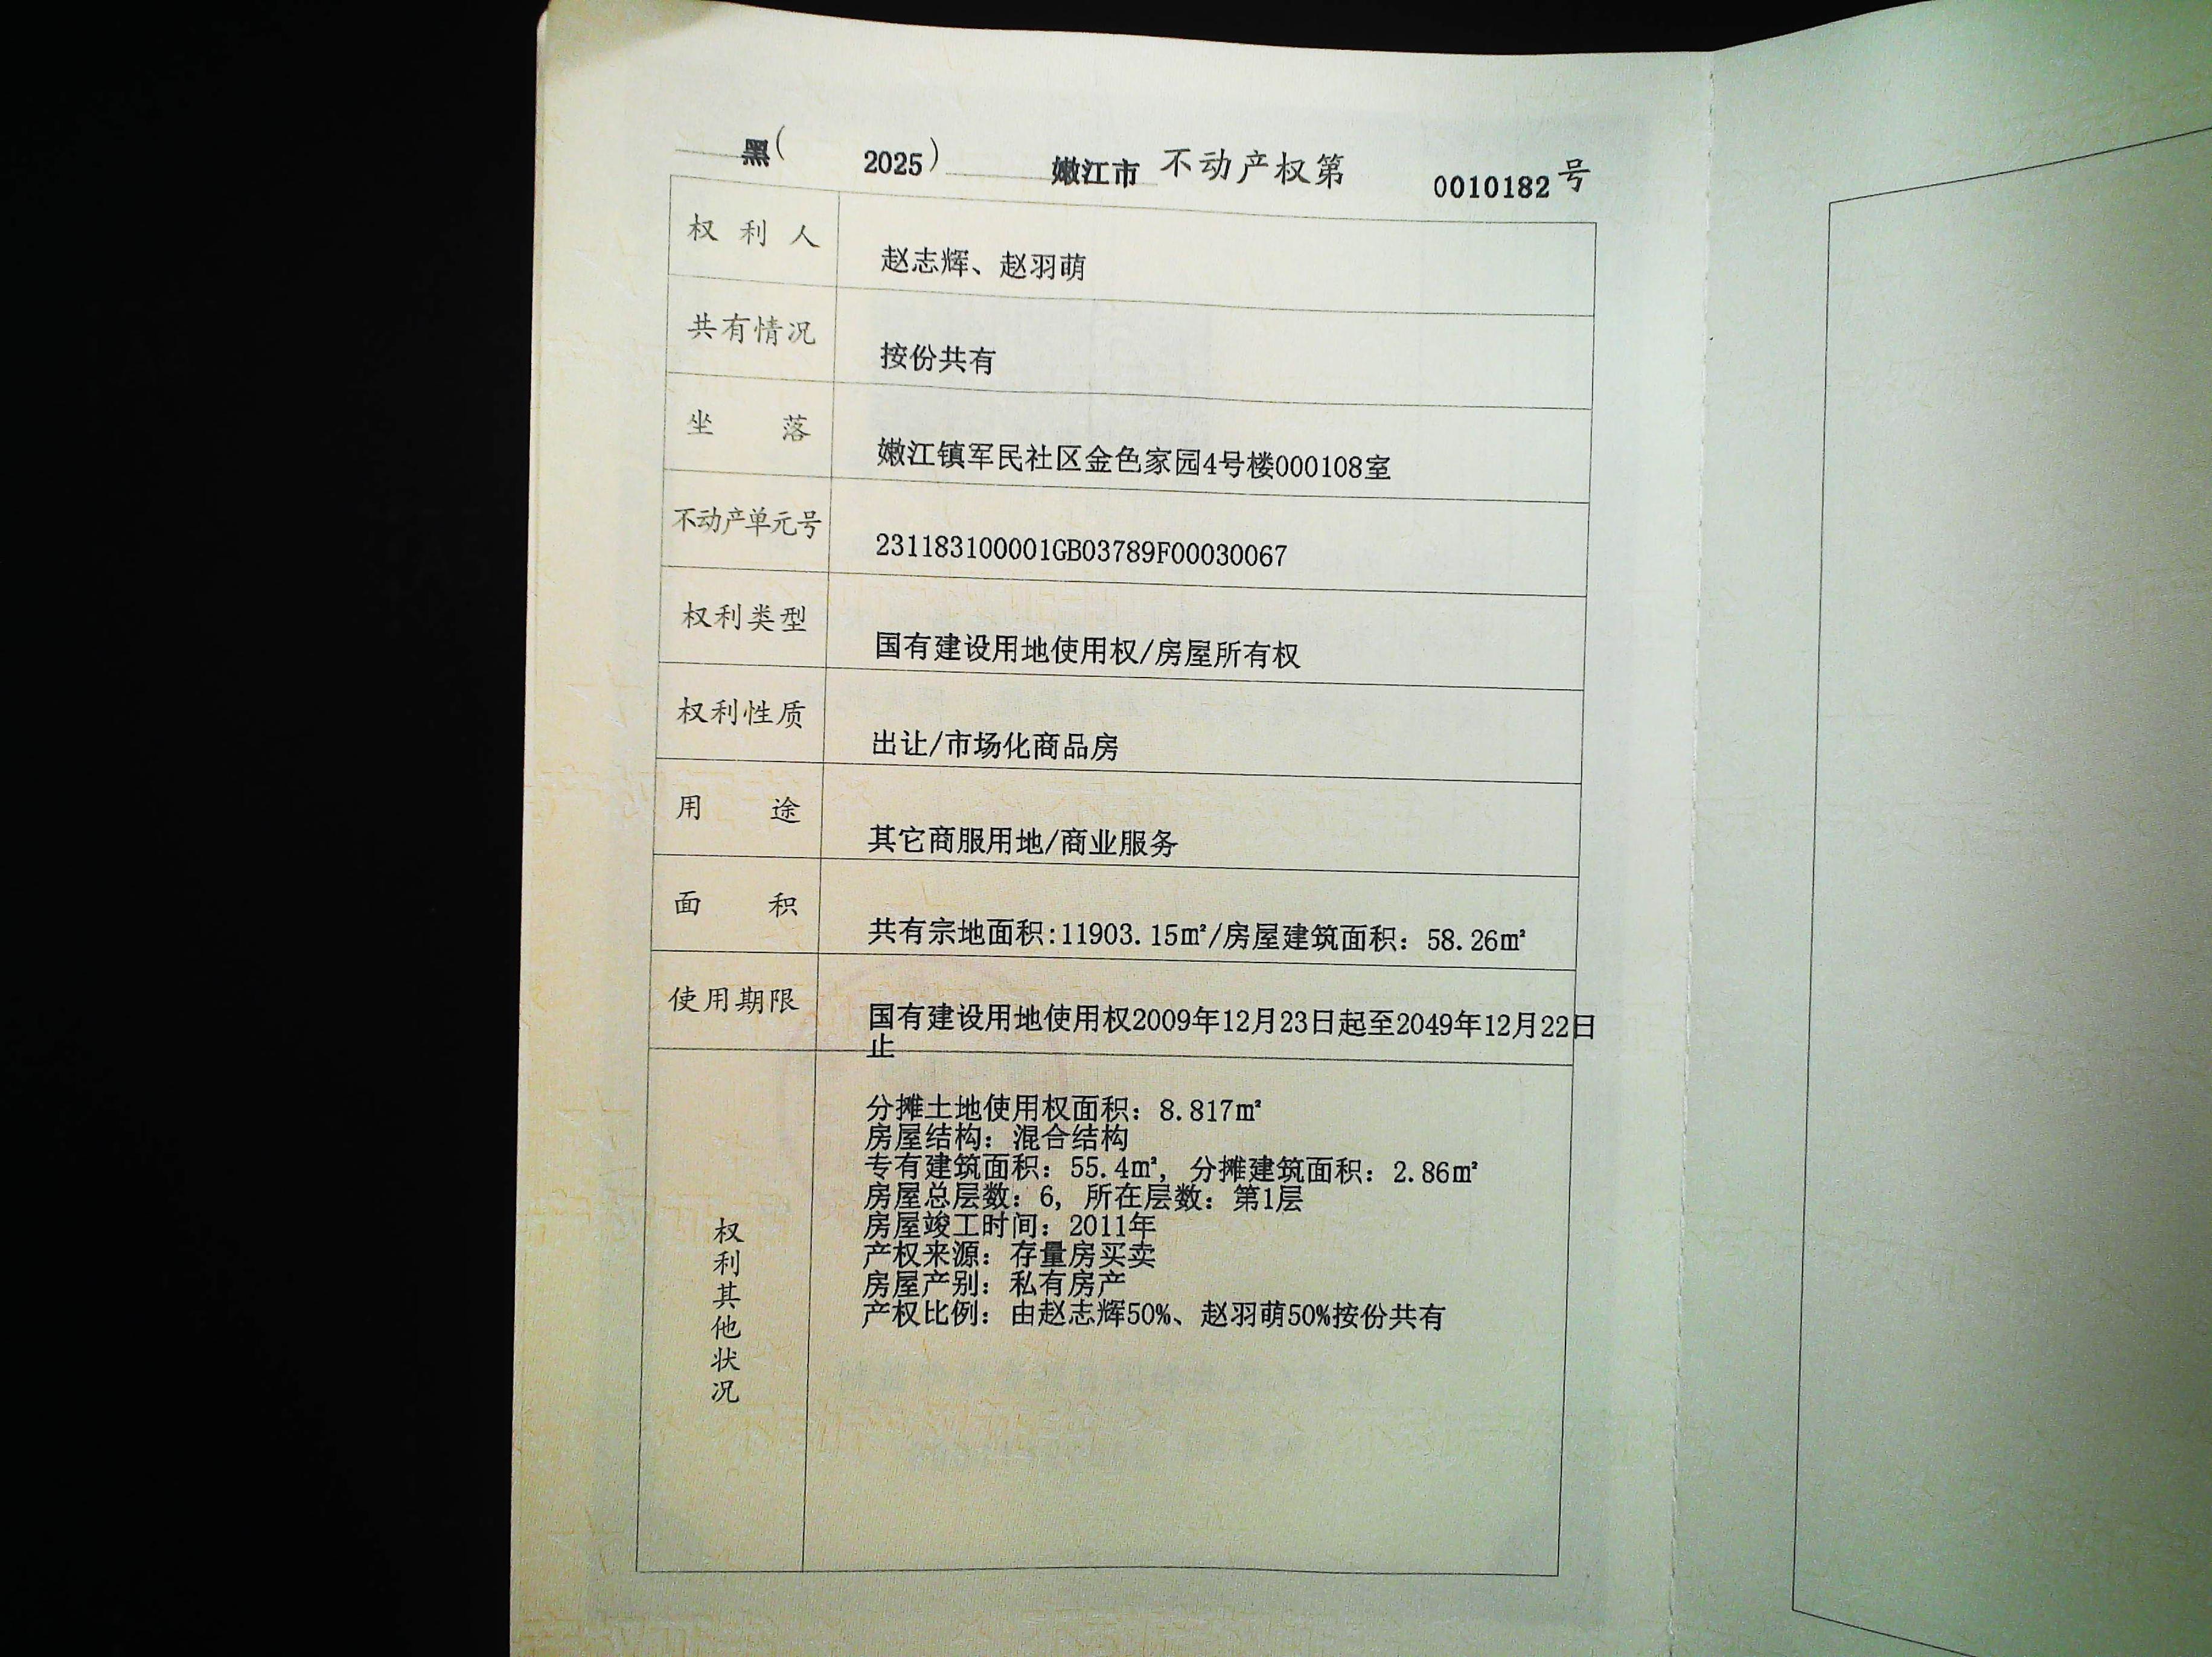 黑( 2025) 嫩江市 不动产权第 0010182 号
权利人 赵志辉、赵羽萌
共有情况 按份共有
坐落 嫩江镇军民社区金色家园4号楼000108室
不动产单元号 231183100001GB03789F00030067
权利类型 国有建设用地使用权/房屋所有权
权利性质 出让/市场化商品房
用途 其它商服用地/商业服务
面积 共有宗地面积:11903.15㎡/房屋建筑面积：58.26㎡
使用期限 国有建设用地使用权2009年12月23日起至2049年12月22日
止
权利其他状况
分摊土地使用权面积：8.817㎡
房屋结构：混合结构
专有建筑面积：55.4㎡，分摊建筑面积：2.86㎡
房屋总层数：6，所在层数：第1层
房屋竣工时间：2011年
产权来源：存量房买卖
房屋产别：私有房产
产权比例：由赵志辉50%、赵羽萌50%按份共有